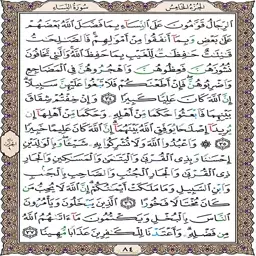 الجزء الخامس سورة النساء
الرجال قوامون على النساء بما فضل الله بعضهم
على بعض وبما أنفقوا من أموالهم فالصالحات
قانتات حافظات للغيب بما حفظ الله والتي تخافون
نشوزهن فعظوهن واهجروهن في المضاجع
واضربوهن فإن أطعنكم فلا تبغوا عليهن سبيلا
إن الله كان عليا كبيرا ٣٤ وإن خفتم شقاق
بينهما فابعثوا حكما من أهله وحكما من أهلها إن
يريدا إصلاحا يوفق الله بينهما إن الله كان عليما خبيرا
٣٥ واعبدوا الله ولا تشركوا به شيئا وبالوالدين
إحسانا وبذي القربى واليتامى والمساكين والجار
ذي القربى والجار الجنب والصاحب بالجنب
وابن السبيل وما ملكت أيمانكم إن الله لا يحب من
كان مختالا فخورا ٣٦ الذين يبخلون ويأمرون
الناس بالبخل ويكتمون ما آتاهم الله
من فضله وأعتدنا للكافرين عذابا مهينا ٣٧
٨٤